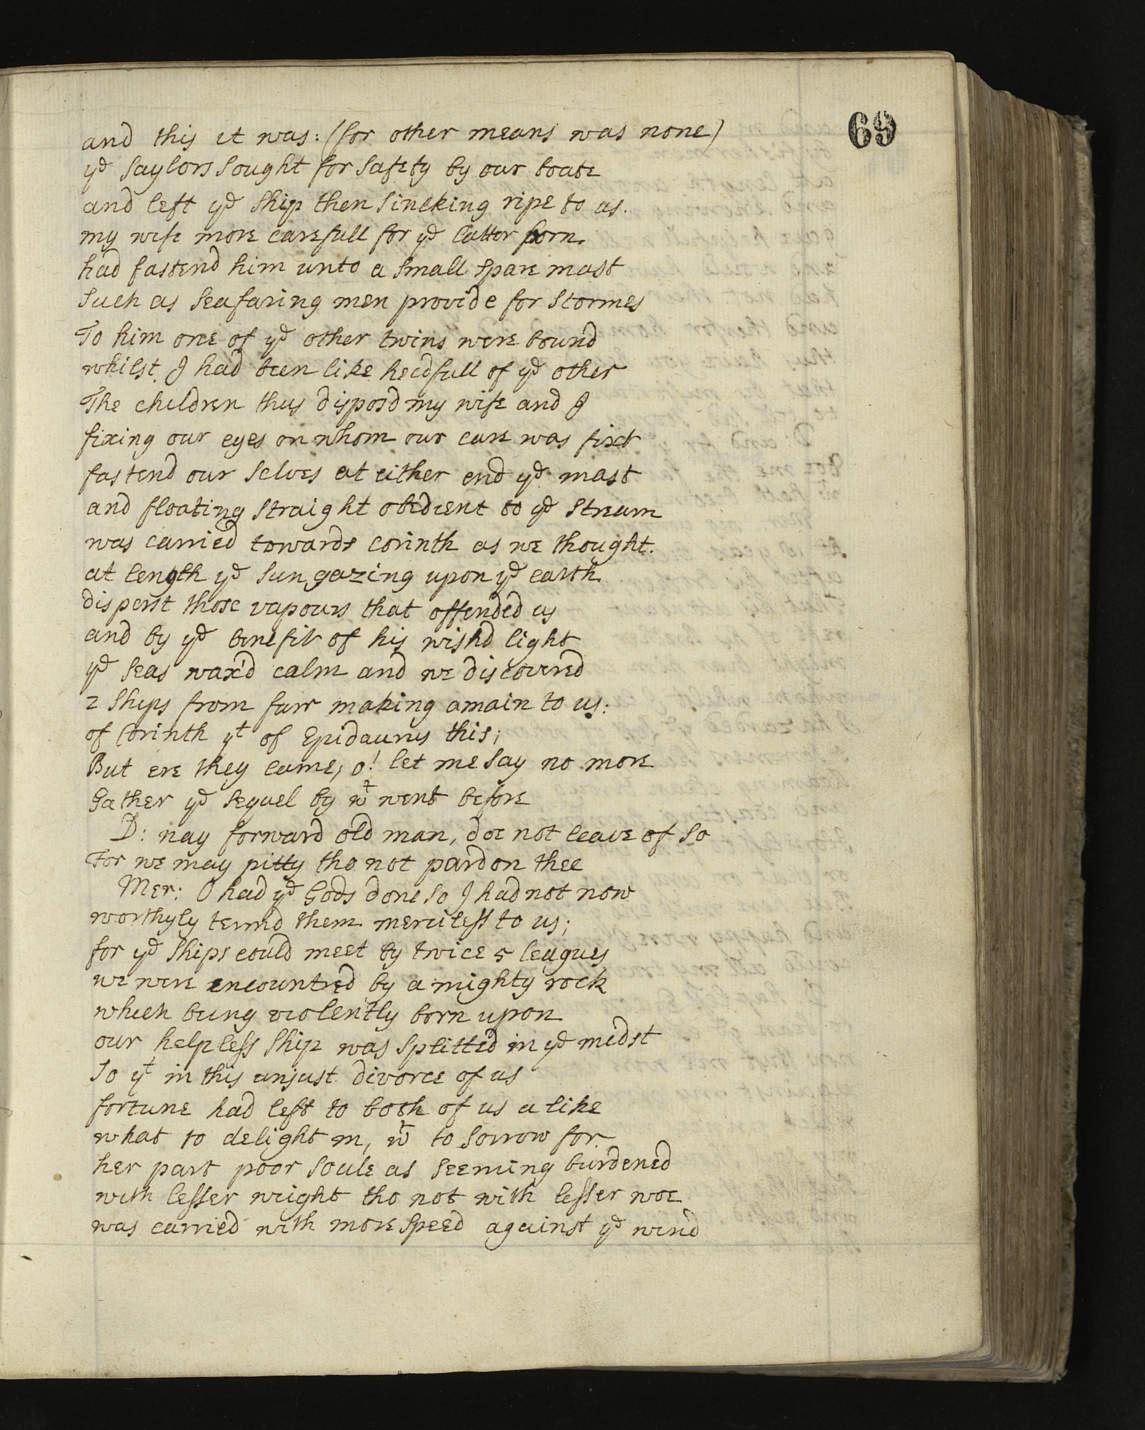 69
and this it was: (for other means was none)
yᵉ saylors sought for safety by our boate
and left yᵉ ship then sincking ripe to us.
my wife more carefull for yᵉ latter born
had fastend him unto a small spare mast
such as seafaring men provide for stormes
To him one of yᵉ other twins were bound
whilst I had been like heedfull of yᵉ other
The children thus disposd my wife and I
fixing our eyes on whom our care was fixt
fastend our selves at either end yᵉ mast
and floating straight obedient to yᵉ stream
was carried towards corinth as we thought.
at length yᵉ sun gazing upon yᵉ earth
disperst those vapours that offended us
and by yᵉ benefit of his wishd light
yᵉ seas wax'd calm and we discovered
2 ships from farr making amain to us:
of Corinth yᵗ of Epidaurus this;
But ere they came, o! let me say no more
Gather yᵉ sequel by wᵗ went before
D: nay forward old man, doe not leave of so
For we may pitty tho not pardon thee
Mer: O had yᵉ Gods done so I had not now
worthyly termd them merciless to us;
for yᵉ ships could meet by twice 5 leagues
we were encountred by a mighty rock
which being violently born upon
our helpless ship was splitted in yᵉ midst
So yᵗ in this unjust divorce of us
fortune had left to both of us a like
what to delight in, wᵗ to sorrow for
her part poor soule as seeming burdened
with lesser weight tho not with lesser woe
was carried with more speed against yᵉ wind